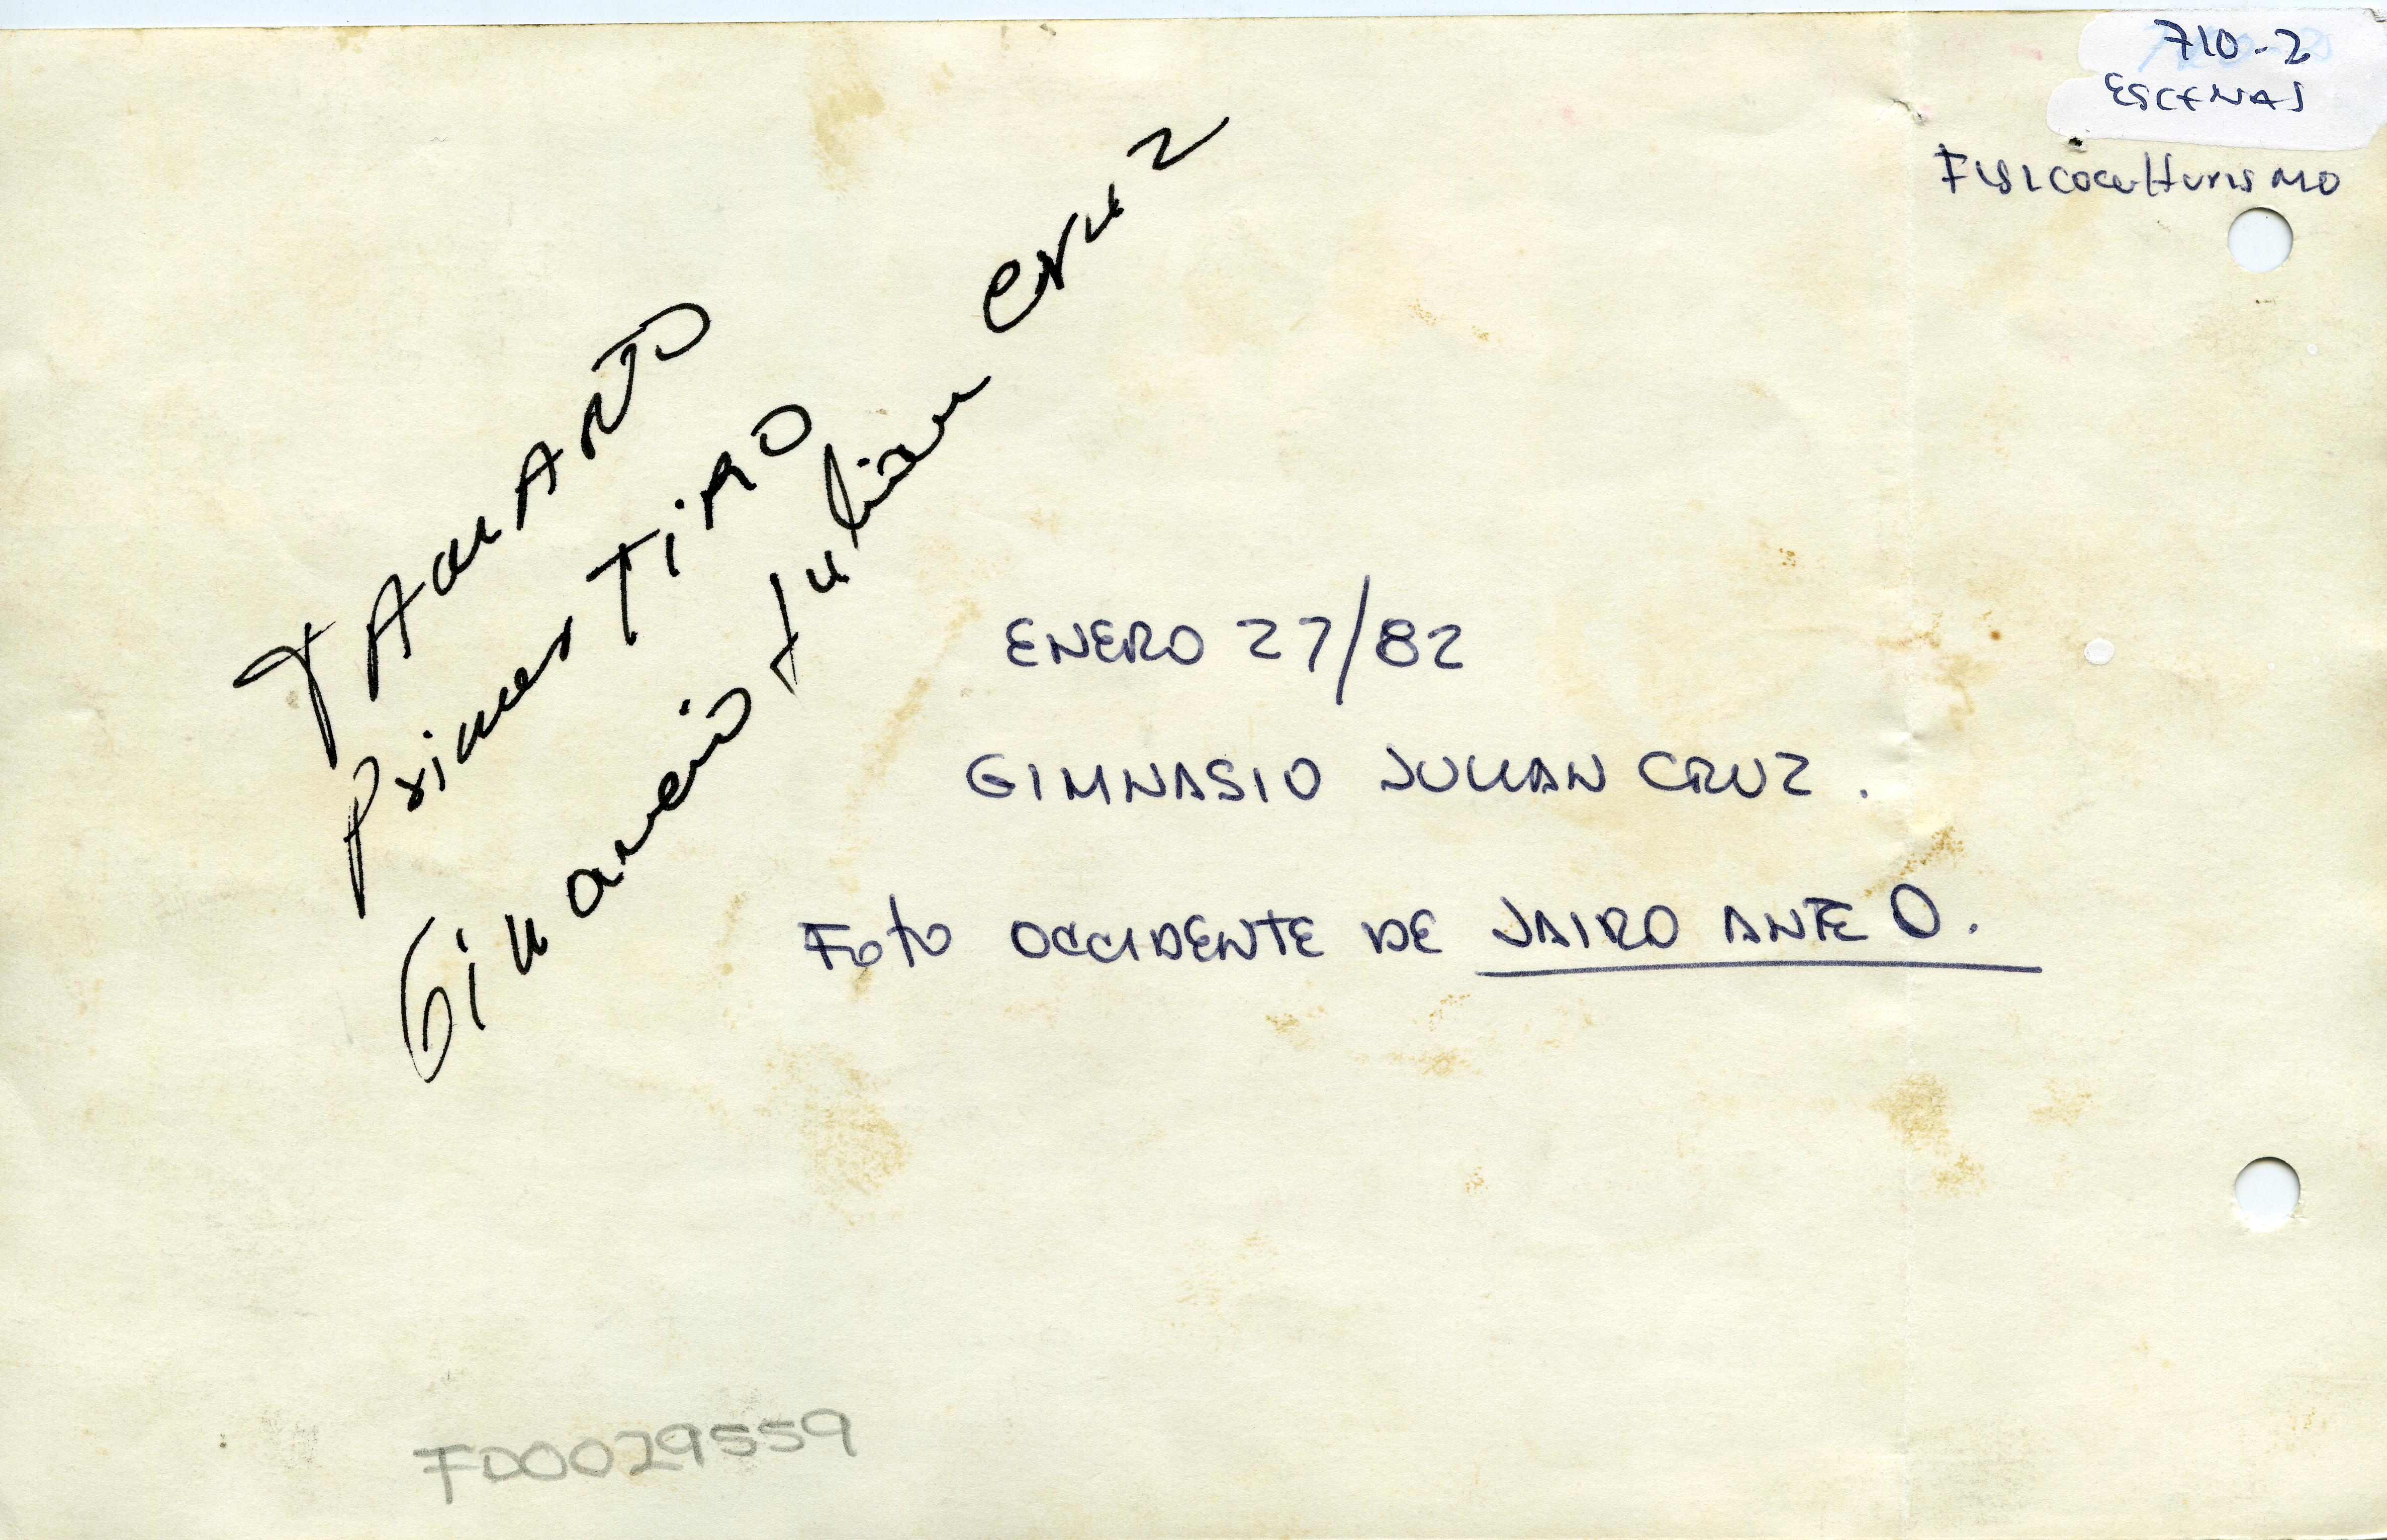 710-2
ESCENAS
Fisicoculturismo
Primer Tiro
Gimnasio Julian Cruz
ENERO 27/82
GIMNASIO JULIAN CRUZ.
Foto OCCIDENTE DE JAIRO ANTE O.
FD0029559